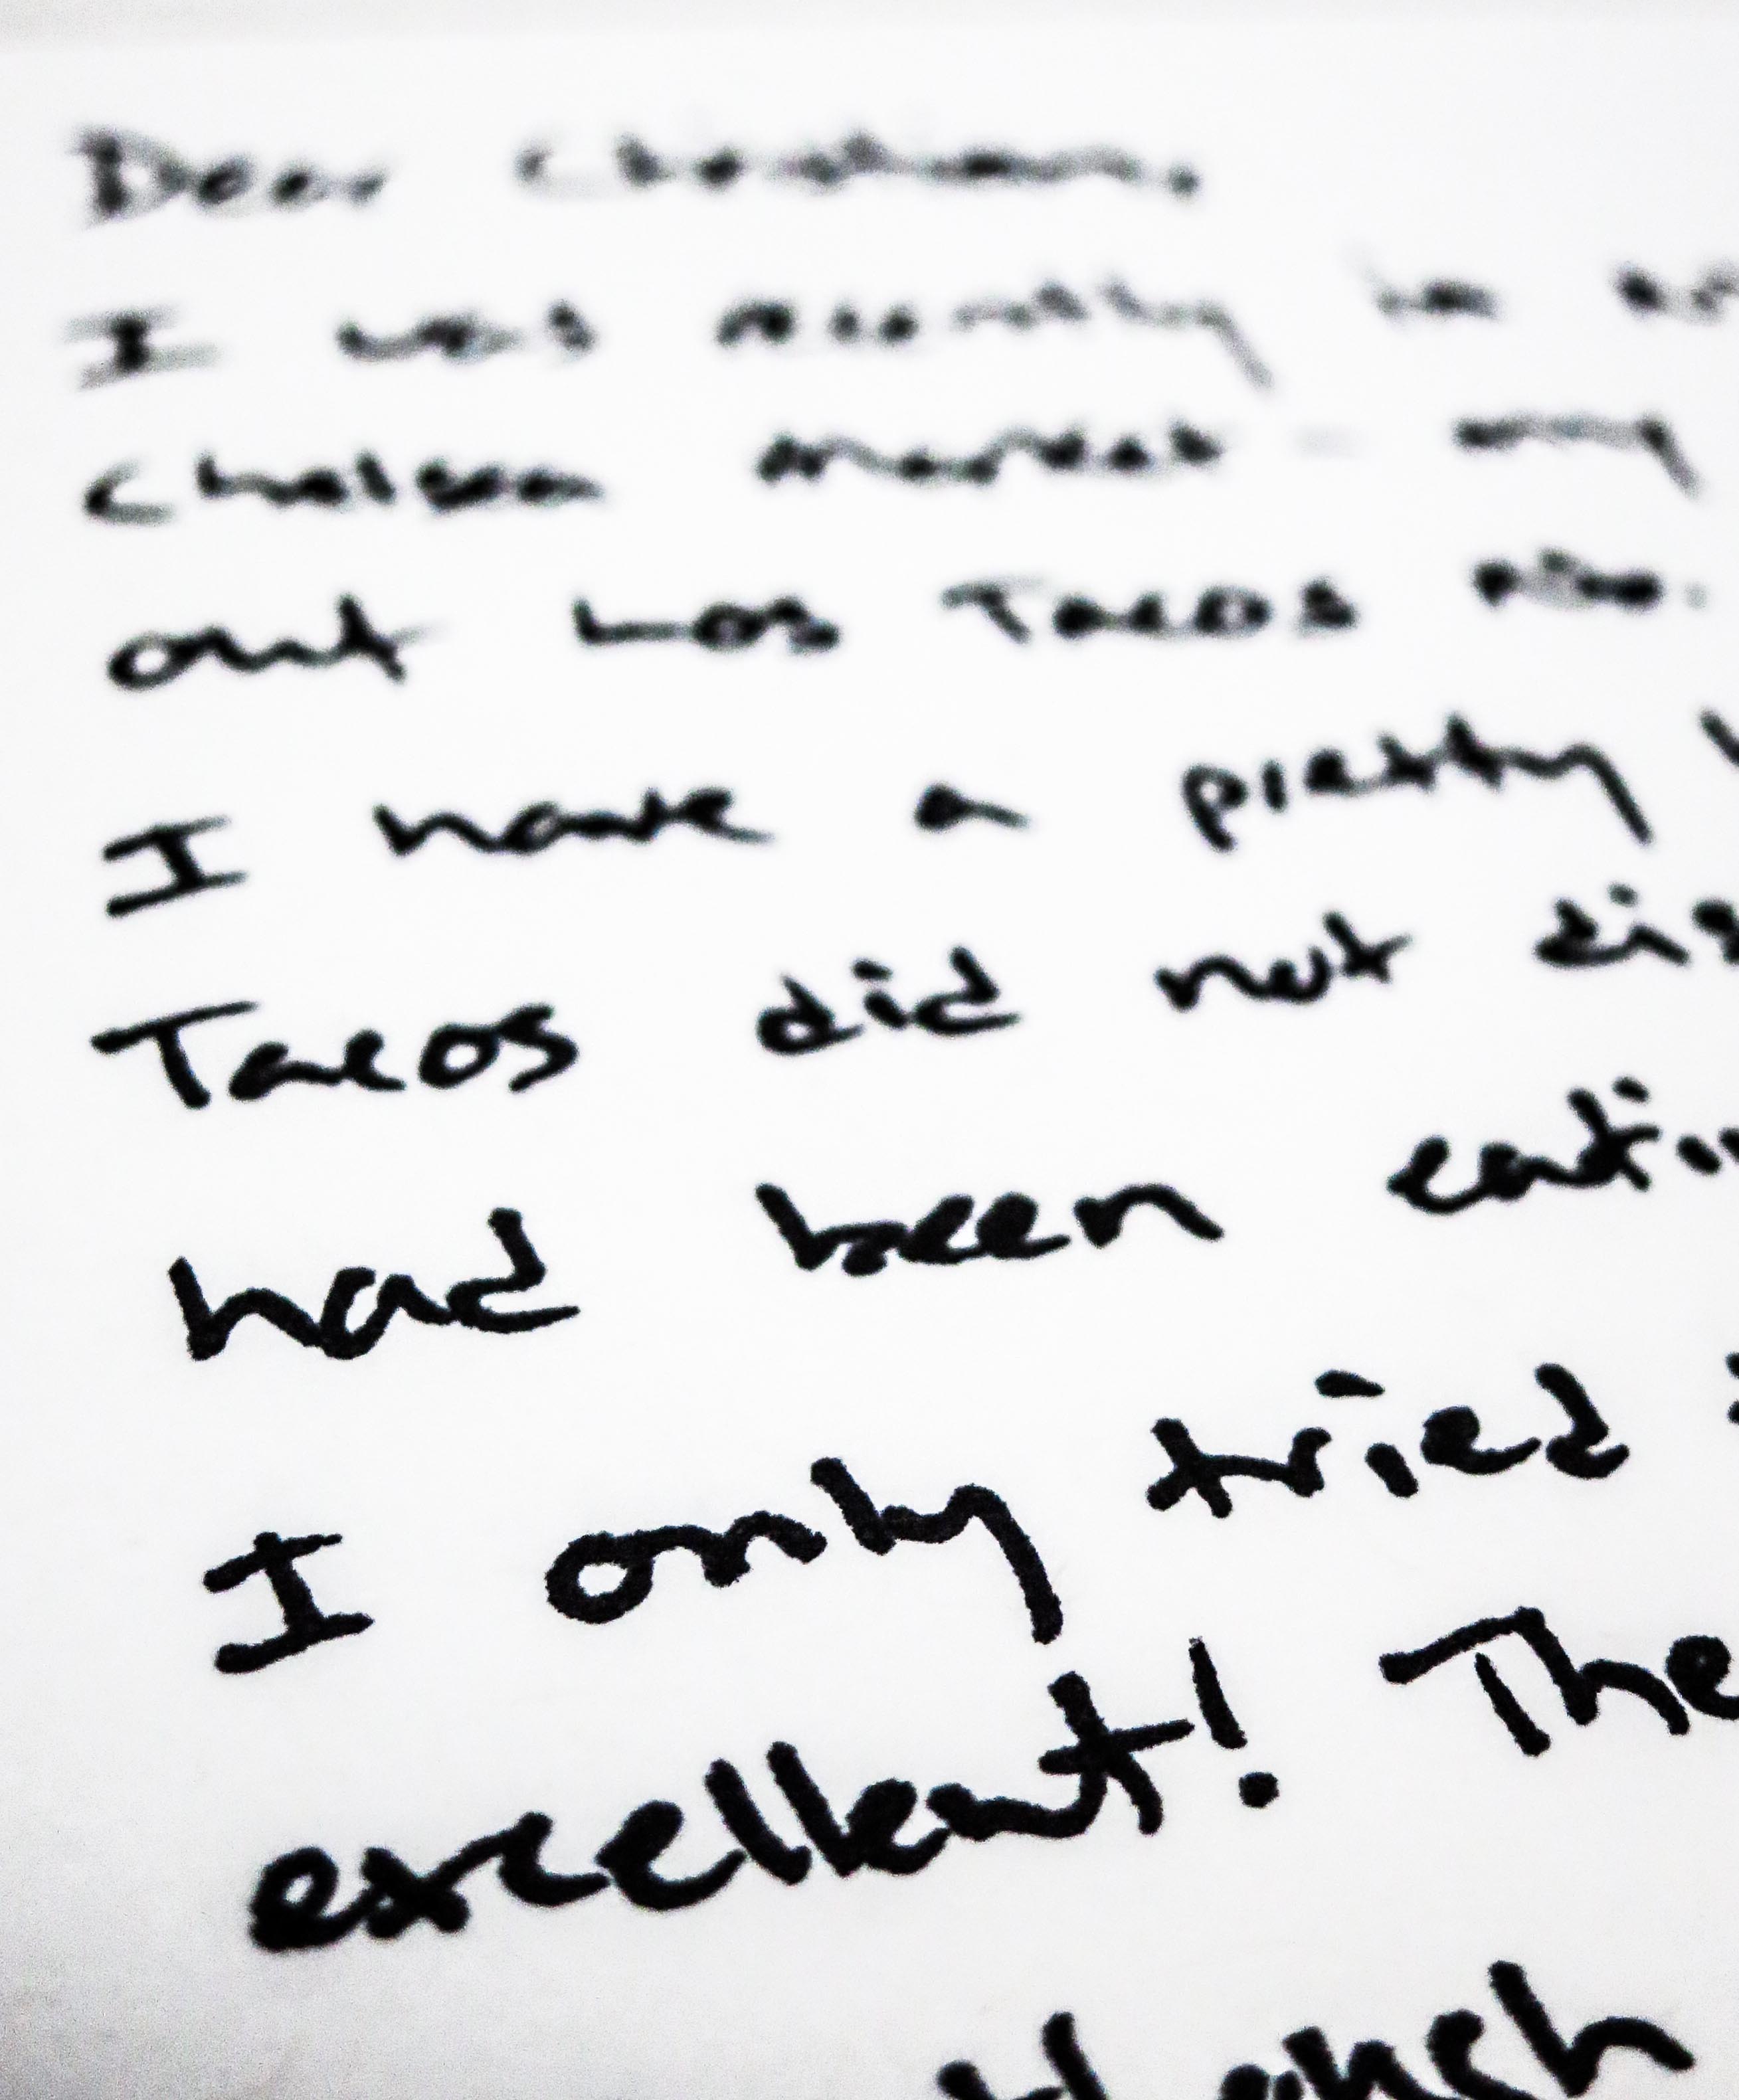 Dear Christian,
I was recently in
Chelsea market - my
out Los Tacos No.
I have a pretty
Tacos did not dis
had been eatin
I only tried
excellent! The